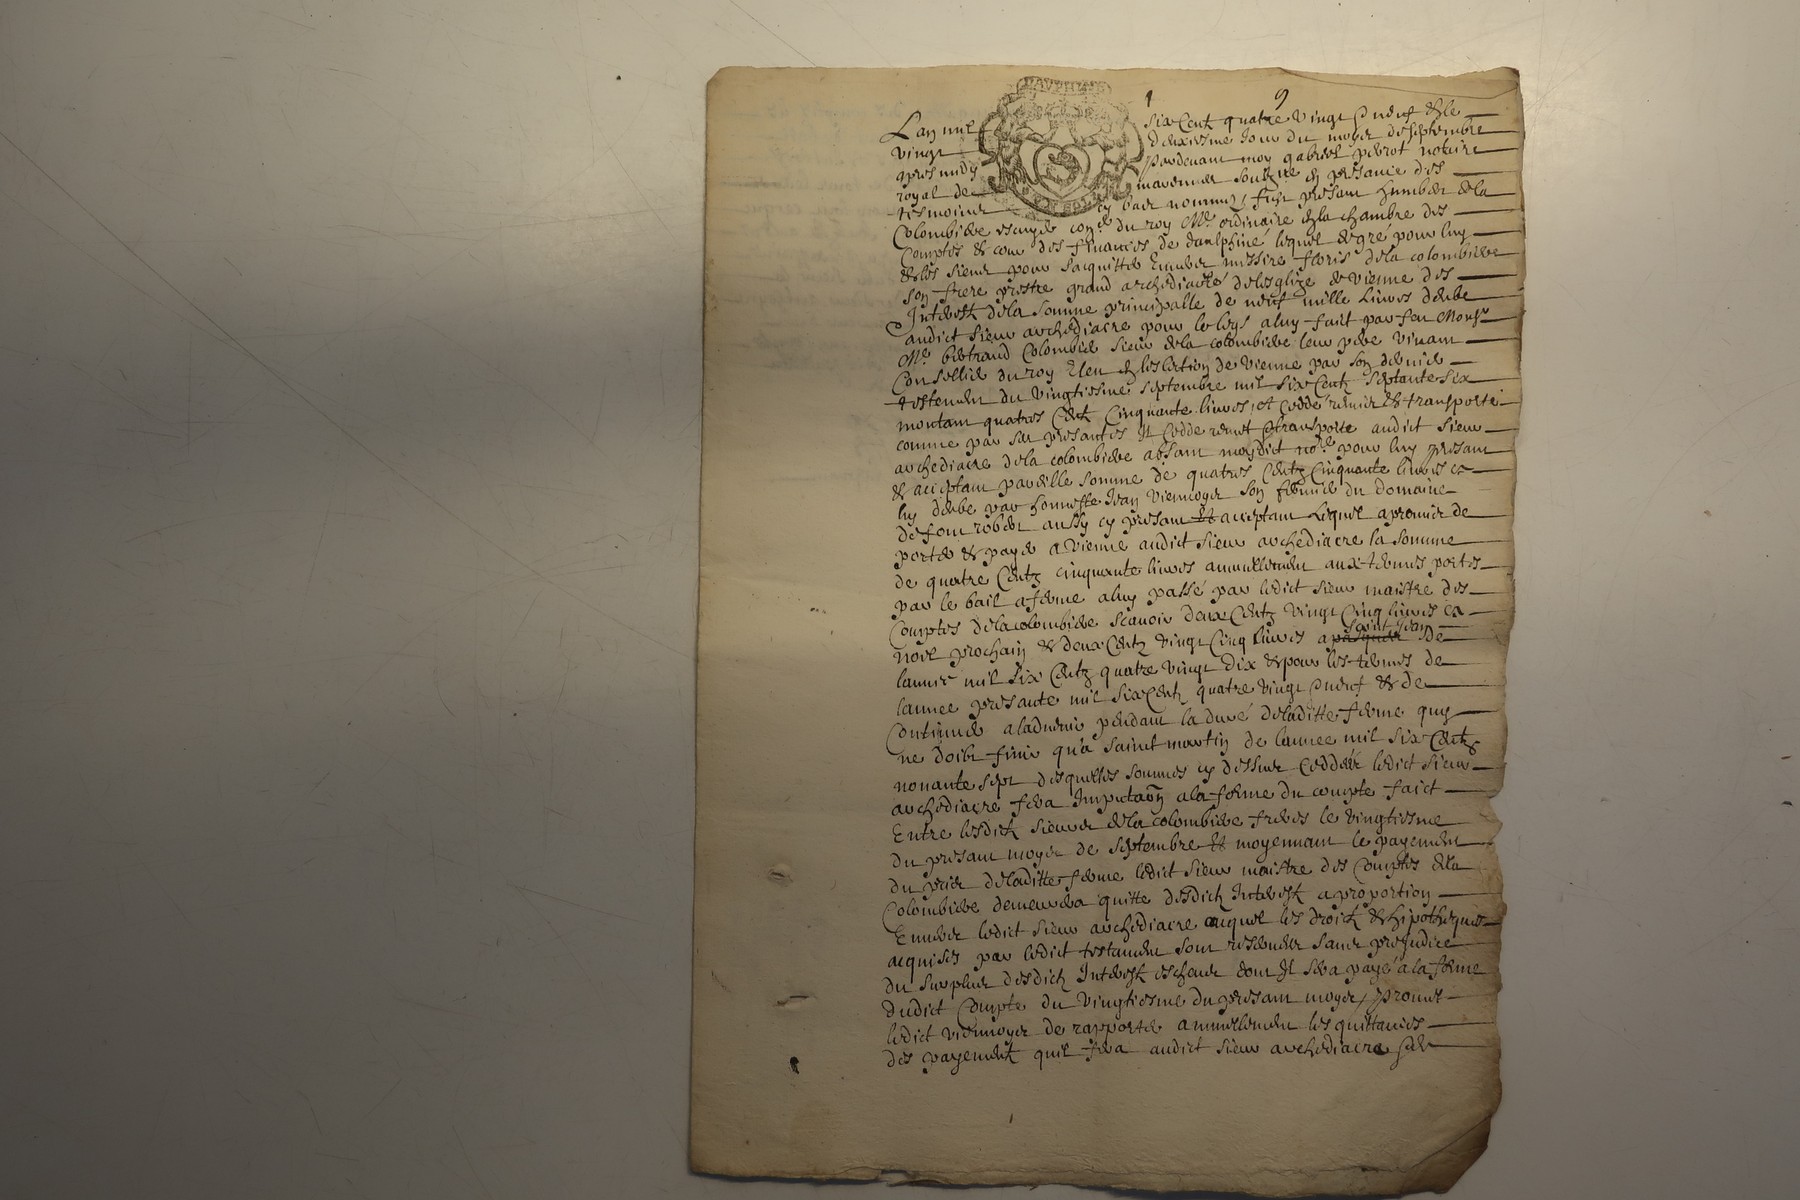 1 9
DAVPHINE
Lan mil six Cent quatre vingt Dneuf & le
vingt deuxiesme Jour du moys de septembre
apres midy pardevant moy gabriel perrot notaire
royal de soubzne & presance des
tesmoins cy bas nommez fust presant humbert de la
Colombiere escuyer coner du roy Me ordinaire en la chambre des
Comptes & cour des finances de daulphiné lequel de gré pour luy
& les siens pour sacquitter Envers messire floris de la colombiere
son frere prestre grand archediacre de lesglize de vienne des
Interestz de la somme principalle de neuf mille livres deube
audict sieur archediacre pour le legs a luy fait par feu Monsr
Me bertrand Colombier sieur de la colombiere leur pere vivant
Conseillier du roy Eleu en leslection de vienne par son dernier
testement du vingtiesme septembre mil six Centz septante six
montant quatres Centz Cinquante livres, et cedde remis & transporté
comme par ses presantes Il cedde remet & transporte audict sieur
archediacre de la colombiere absant moydict nore pour luy presant
& acceptant pareille somme de quatres Centz Cinquante livres a
luy deube par honneste Jean viennoyer son fermier du domaine
de four robert aussy cy presant Et acceptant Lequel a promis de
porter & payer a vienne audict sieur archediacre la somme
de quatre Centz cinquante livres annuellement aux termes portes
par le bail a ferme a luy passé par ledict sieur maistre des
Comptes de la colombiere scavoir deux Centz vingt Cinq livres ca
noel prochain & deux Centz vingt Cinq livres a pasques saint Jean de
lannee mil six Centz quatre vingt dix & pour les termes de
lannee presante mil six Centz quatre vingt Dneuf & de
Continuer a ladvenir pendant la duré de laditte ferme quy
ne doibt finir qu'a sainct martin de lannee mil six Centz
nonante sept desquelles sommes cy dessus Ceddées ledict sieur
archediacre fera Imputaon a la forme du compte faict
Entre lesdictz sieurs de la colombiere freres le vingtiesme
du presant moys de septembre Et moyennant le payement
du prix de laditte ferme ledict sieur maistre des Comptes de la
Colombiere demeurera quitte desdictz Interestz a proportion
Envers ledict sieur archediacre auquel les droictz & hipotheques
acquises par ledict testament sont reservees sans prejudice
du surplus desdictz Interestz escheus dont Il sera payé a la forme
dudict Compte du vingtiesme du presant moys, promet
ledict viennoyer de rapporter annuellement les quittances
des payementz quil fera audict sieur archediacre